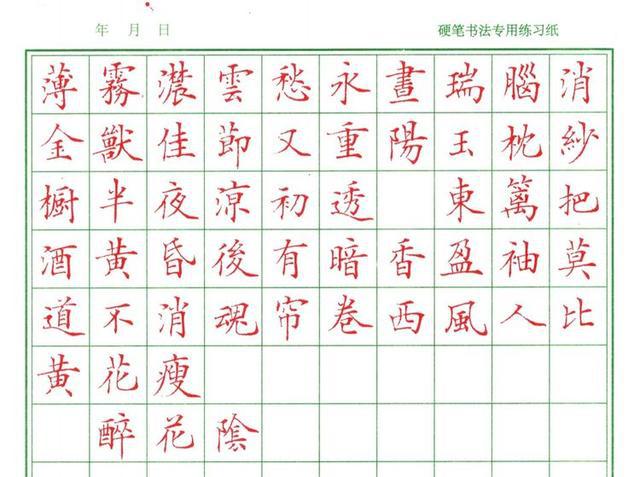 年 月 日 硬笔书法专用练习纸
薄霧濃雲愁永晝瑞腦消
金獸佳節又重陽玉枕紗
橱半夜涼初透 東籬把
酒黄昏後有暗香盈袖莫
道不消魂帘卷西風人比
黄花瘦
醉花陰